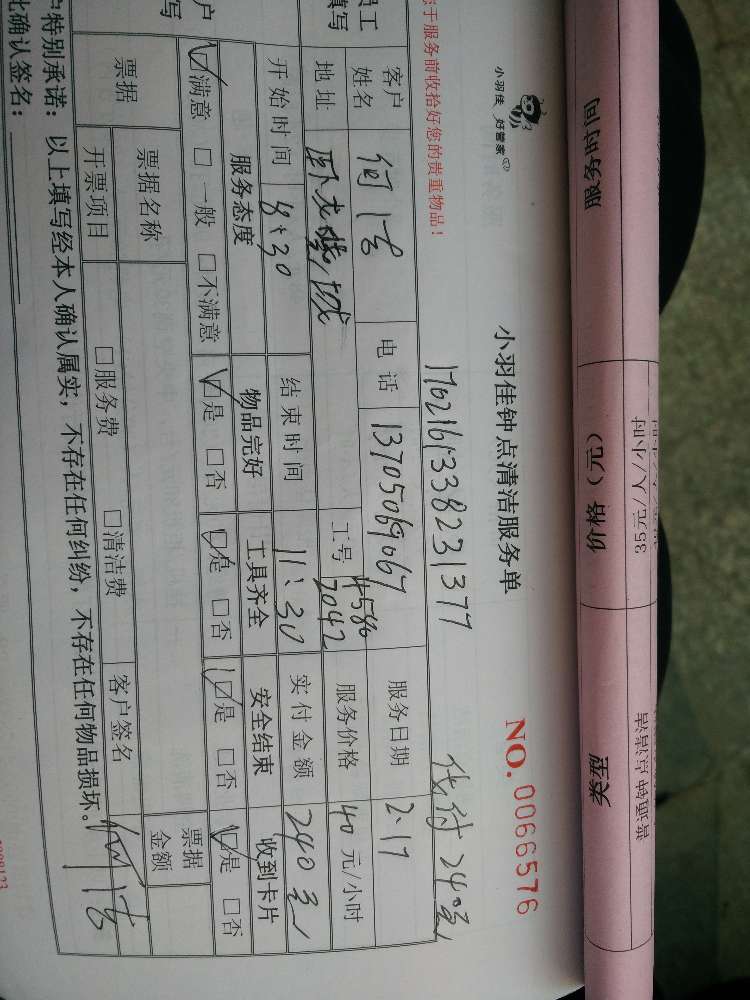 服务时间 价格（元） 类型
35元/人/小时 普通钟点清洁
小羽佳 好管家
小羽佳钟点清洁服务单 NO.0066576
您于服务前收拾好您的贵重物品！
1702161338231377 代付240元
员工
填写
客户姓名 何洁 电话 13705069067 服务日期 2.17
地址 卧龙 城 工号 4580 7042 服务价格 40元/小时
开始时间 8:30 结束时间 11:30 实付金额 240元
服务态度 物品完好 工具齐全 安全结束 收到卡片
☑满意 □一般 □不满意 ☑是 □否 ☑是 □否 ☑是 □否 ☑是 □否
户
写
票据 票据名称 票据金额
开票项目 □服务费 □清洁费 客户签名 何洁
户特别承诺：以上填写经本人确认属实，不存在任何纠纷，不存在任何物品损坏。
此确认签名：